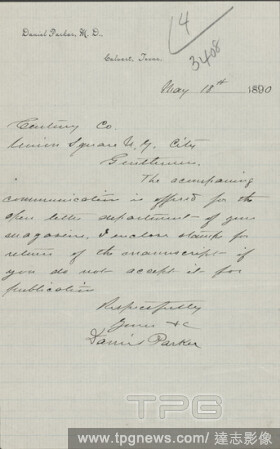 4
3408
Daniel Parker, M. D.,
Calvert, Texas,
May 18th 1890
Century Co.
Union Square N.Y. City
Gentlemen.
The acompaning
communication is offered for the
open letter department of your
magazine. I enclose stamps for
return of the manuscript if
you do not accept it for
publication
Respectfully
Yours &c
Daniel Parker
TPG
www.tpgnews.com / 達志影像